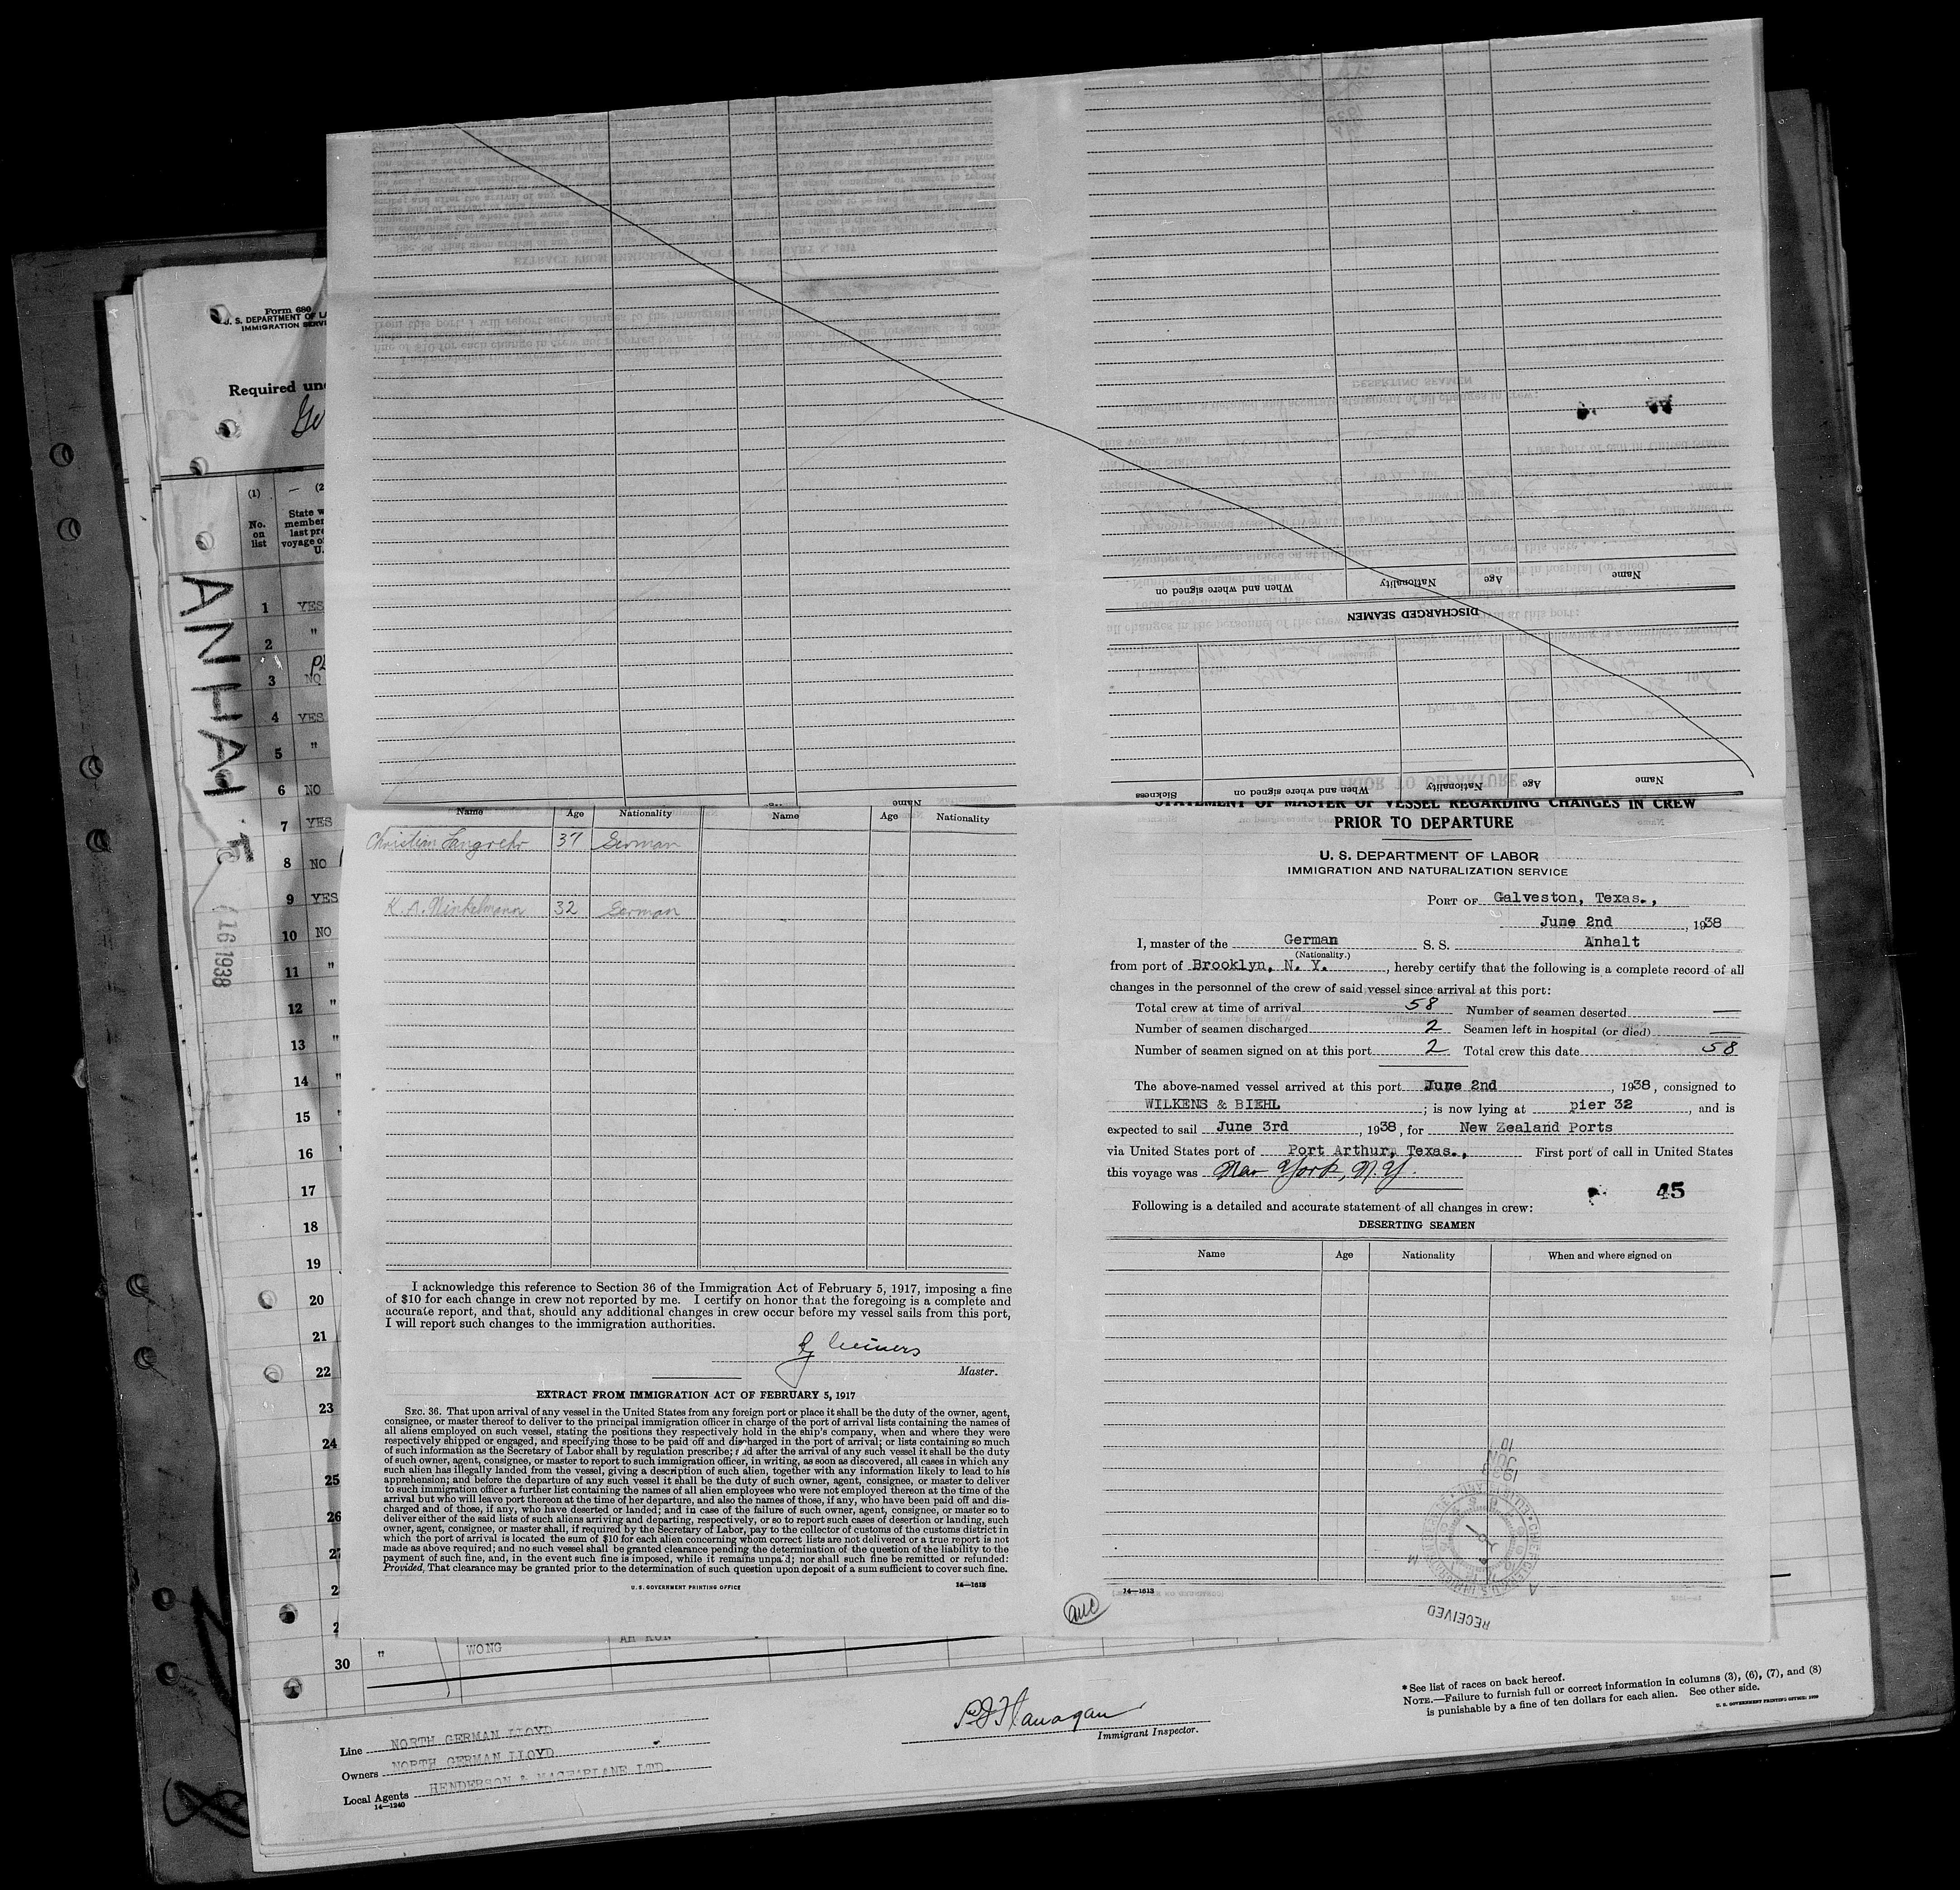 Form 680
U. S. DEPARTMENT OF L
IMMIGRATION SERV
Required un
(1)
No.
on
list
State w
member
last pr
voyage o
U.
ANHALT
16 1938
1 YES
2 "
3 NO
4 YES
5 "
6 NO
7 YES
8 NO
9 YES
10 NO
11 "
12 "
13 "
14 "
15 "
16 "
17
18
19
20
21
22
23
24
25
26
30 " WONG AH KUN
DISCHARGED SEAMEN
Name Age Nationality When and where signed on
Name Age Nationality When and where signed on Sickness
Name Age Nationality Name Age Nationality
Christian Langrehr 37 German
K. A. Winkelmann 32 German
I acknowledge this reference to Section 36 of the Immigration Act of February 5, 1917, imposing a fine
of $10 for each change in crew not reported by me. I certify on honor that the foregoing is a complete and
accurate report, and that, should any additional changes in crew occur before my vessel sails from this port,
I will report such changes to the immigration authorities.
Master.
EXTRACT FROM IMMIGRATION ACT OF FEBRUARY 5, 1917
SEC. 36. That upon arrival of any vessel in the United States from any foreign port or place it shall be the duty of the owner, agent,
consignee, or master thereof to deliver to the principal immigration officer in charge of the port of arrival lists containing the names of
all aliens employed on such vessel, stating the positions they respectively hold in the ship's company, when and where they were
respectively shipped or engaged, and specifying those to be paid off and discharged in the port of arrival; or lists containing so much
of such information as the Secretary of Labor shall by regulation prescribe; and after the arrival of any such vessel it shall be the duty
of such owner, agent, consignee, or master to report to such immigration officer, in writing, as soon as discovered, all cases in which any
such alien has illegally landed from the vessel, giving a description of such alien, together with any information likely to lead to his
apprehension; and before the departure of any such vessel it shall be the duty of such owner, agent, consignee, or master to deliver
to such immigration officer a further list containing the names of all alien employees who were not employed thereon at the time of the
arrival but who will leave port thereon at the time of her departure, and also the names of those, if any, who have been paid off and dis-
charged and of those, if any, who have deserted or landed; and in case of the failure of such owner, agent, consignee, or master so to
deliver either of the said lists of such aliens arriving and departing, respectively, or so to report such cases of desertion or landing, such
owner, agent, consignee, or master shall, if required by the Secretary of Labor, pay to the collector of customs of the customs district in
which the port of arrival is located the sum of $10 for each alien concerning whom correct lists are not delivered or a true report is not
made as above required; and no such vessel shall be granted clearance pending the determination of the question of the liability to the
payment of such fine, and, in the event such fine is imposed, while it remains unpaid; nor shall such fine be remitted or refunded:
Provided, That clearance may be granted prior to the determination of such question upon deposit of a sum sufficient to cover such fine.
U. S. GOVERNMENT PRINTING OFFICE 14—1613
STATEMENT OF MASTER OF VESSEL REGARDING CHANGES IN CREW
PRIOR TO DEPARTURE
U. S. DEPARTMENT OF LABOR
IMMIGRATION AND NATURALIZATION SERVICE
PORT OF Galveston, Texas.,
June 2nd, 1938
I, master of the German S. S. Anhalt
(Nationality.)
from port of Brooklyn, N. Y., hereby certify that the following is a complete record of all
changes in the personnel of the crew of said vessel since arrival at this port:
Total crew at time of arrival 58 Number of seamen deserted —
Number of seamen discharged 2 Seamen left in hospital (or died) —
Number of seamen signed on at this port 2 Total crew this date 58
The above-named vessel arrived at this port June 2nd, 1938, consigned to
WILKENS & BIEHL; is now lying at pier 32, and is
expected to sail June 3rd, 1938, for New Zealand Ports
via United States port of Port Arthur, Texas., First port of call in United States
this voyage was New York, N.Y.
45
Following is a detailed and accurate statement of all changes in crew:
DESERTING SEAMEN
Name Age Nationality When and where signed on
JUN
10
RECEIVED
14—1613
Immigrant Inspector.
*See list of races on back hereof.
NOTE.—Failure to furnish full or correct information in columns (3), (6), (7), and (8)
is punishable by a fine of ten dollars for each alien. See other side.
Line NORTH GERMAN LLOYD
Owners NORTH GERMAN LLOYD
Local Agents HENDERSON & MACFARLANE LTD
14—1240